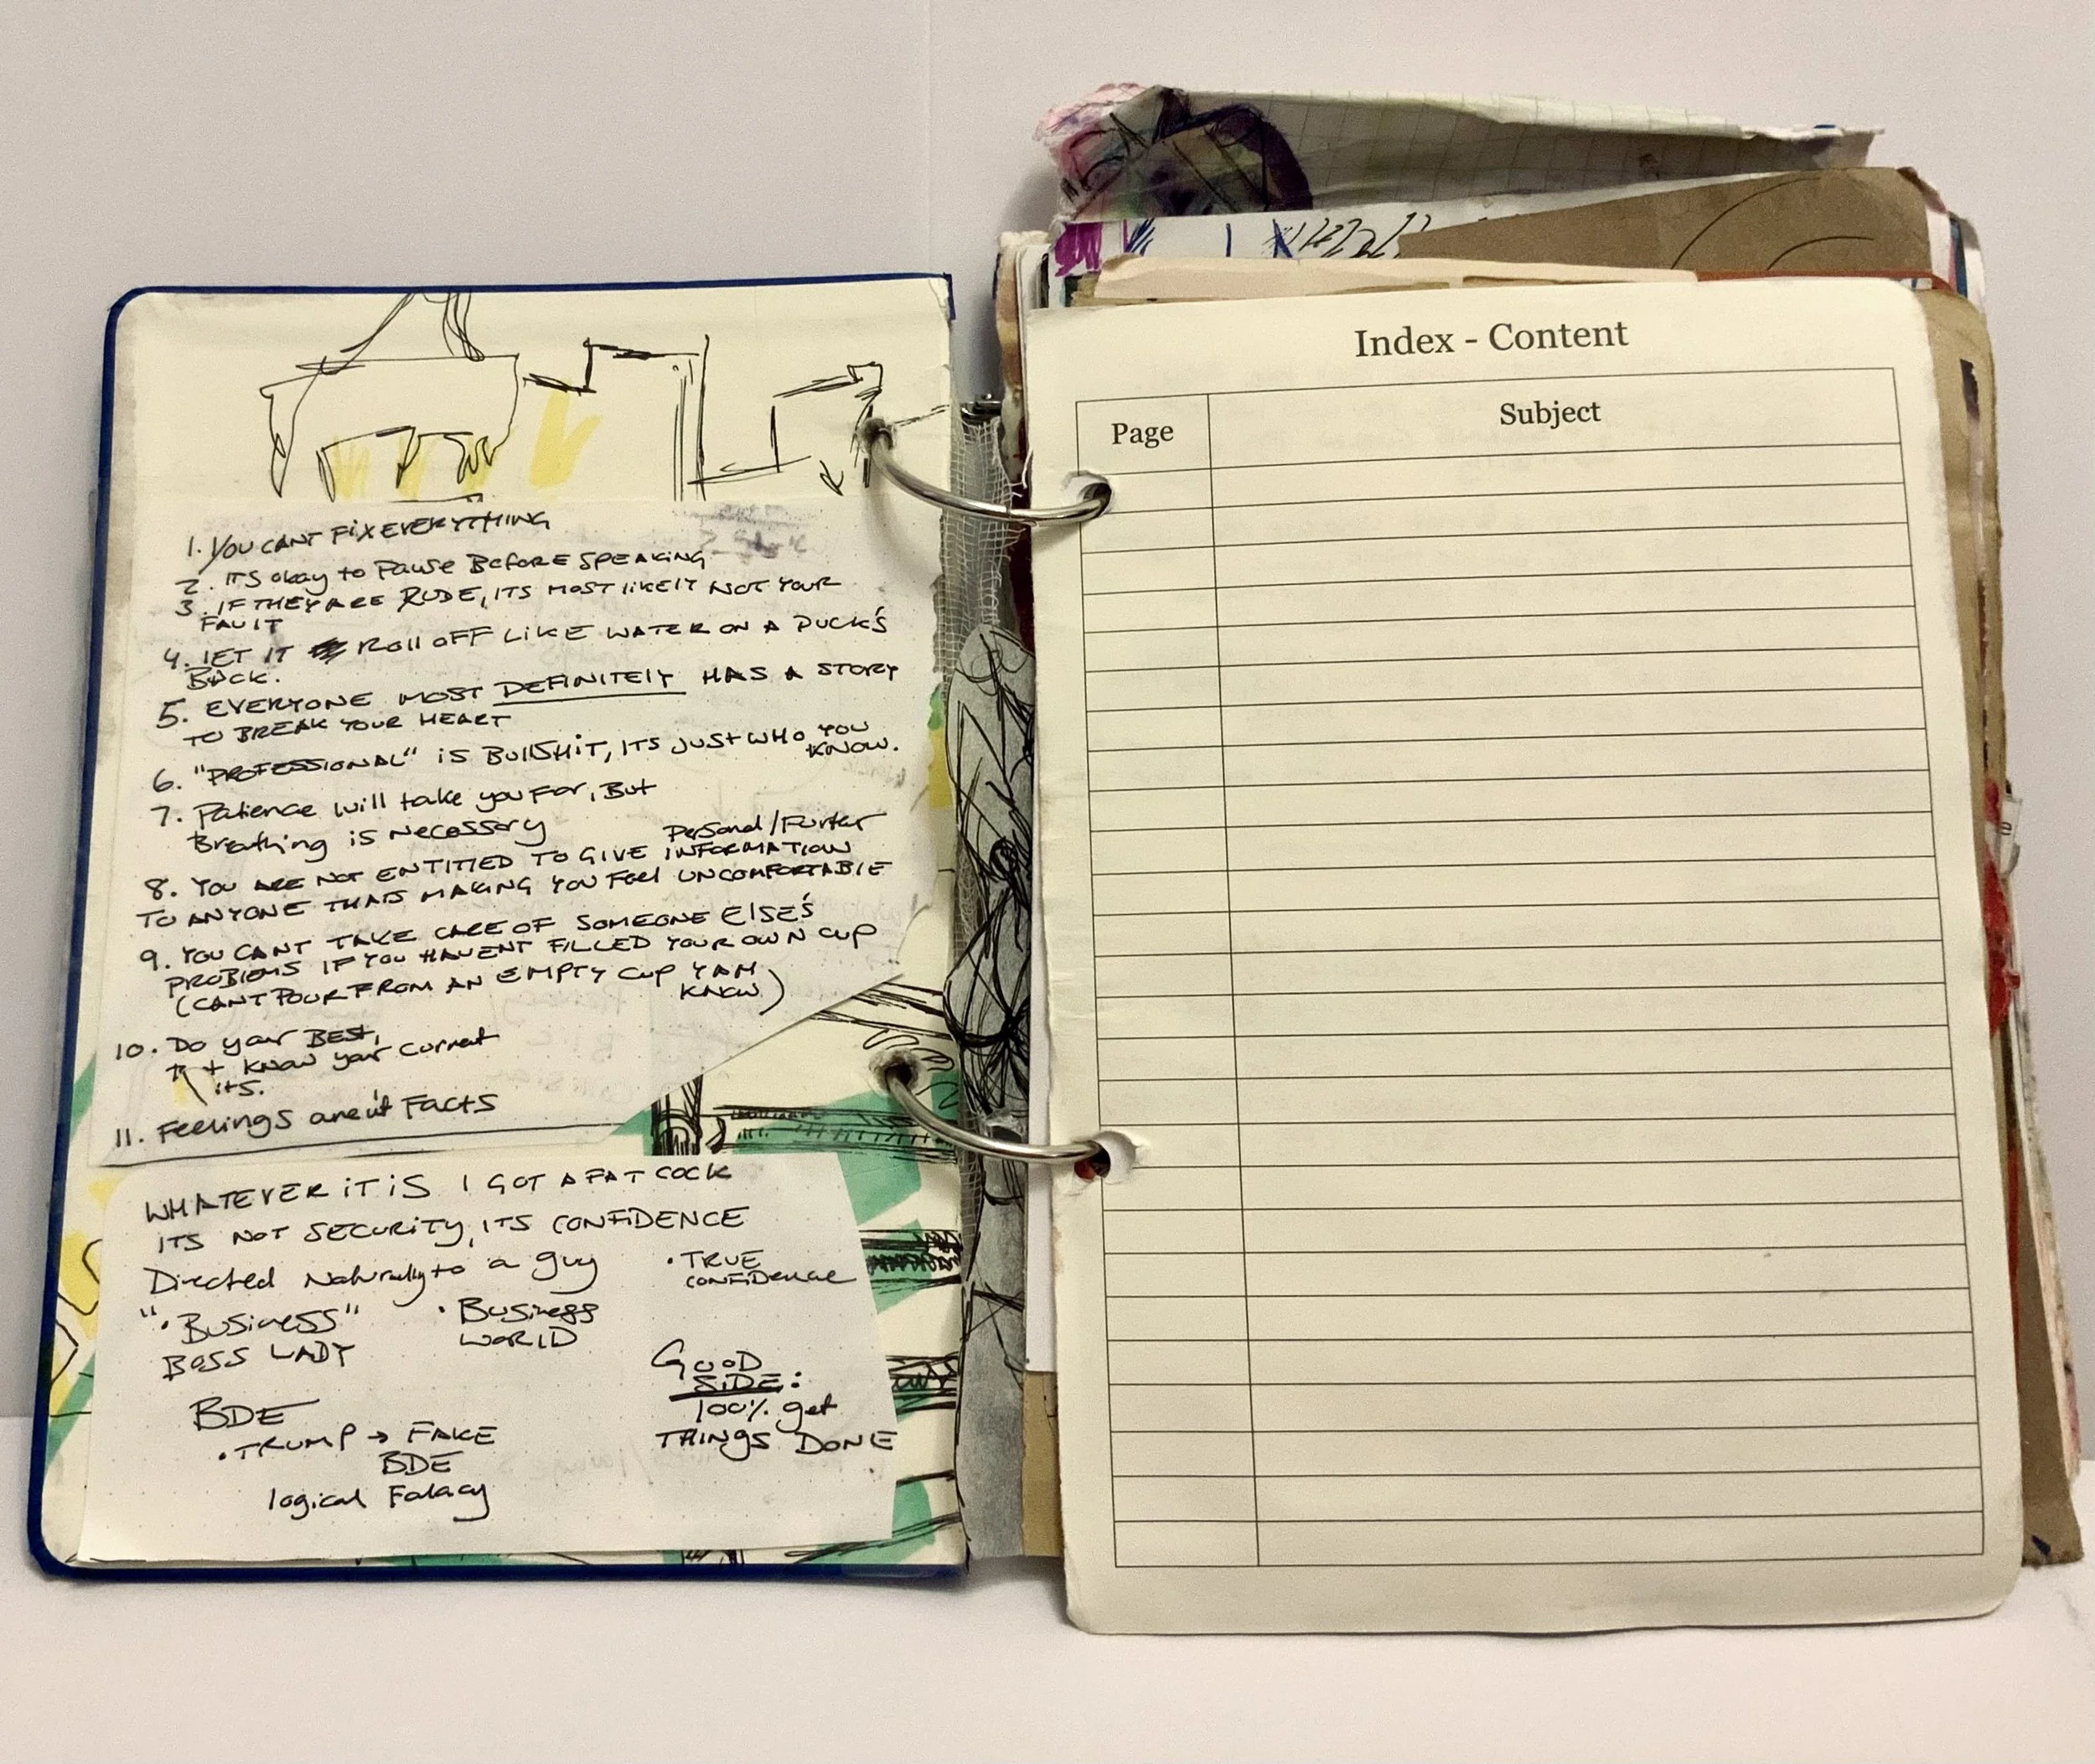 1. YOU CANT FIX EVERYTHING
2. ITS okay to Pause Before SPEAKING
3. IF THEY ARE RUDE, ITS MOST likely NOT YOUR
FAULT
4. LET IT ROLL OFF LIKE WATER ON A DUCK'S
BACK.
5. EVERYONE MOST DEFINITELY HAS A STORY
TO BREAK YOUR HEART
6. "PROFESSIONAL" iS BUllSHiT, ITS JUST WHO YOU
KNOW.
7. Patience will take you far, But
Breathing is Necessary
Personal/Furter
8. YOU ARE NOT ENTITLED TO GIVE INFORMATION
TO ANYONE THATS MAKING YOU FEEl UNCOMFORTABLE
9. YOU CANT TAKE CARE OF SOMEONE ELSE'S
PROBLEMS IF YOU HAVENT FILLED YOUR OWN CUP
(CANT POUR FROM AN EMPTY CUP YAH
KNOW)
10. Do your BEST,
+ know your current
its.
11. Feelings aren't Facts
WHATEVER iT iS I GOT A FAT COCK
ITS NOT SECURITY, ITS CONFIDENCE
Directed Naturally to a guy
• TRUE
CONFIDence
"• BUSiness"
BOSS LADY
• Business
WORLD
GOOD
SIDE:
100% get
THINGS DONE
BDE
• TRUMP → FAKE
BDE
logical Falacy
Index - Content
Page
Subject